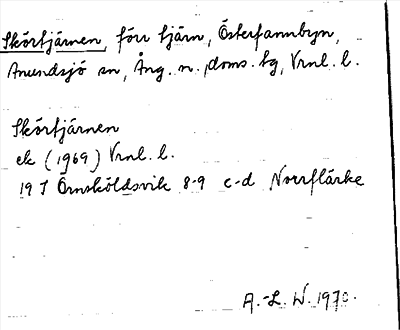 Skórtjärnen, förr tjärn, Österfannbyn,
Anundsjö sn, Ång. n. doms. hg, Vrnl. l.
Skórtjärnen
ek (1969) Vrnl. l.
19 J Örnsköldsvik 8-9 c-d Norrflärke
A.-L. W. 1970.